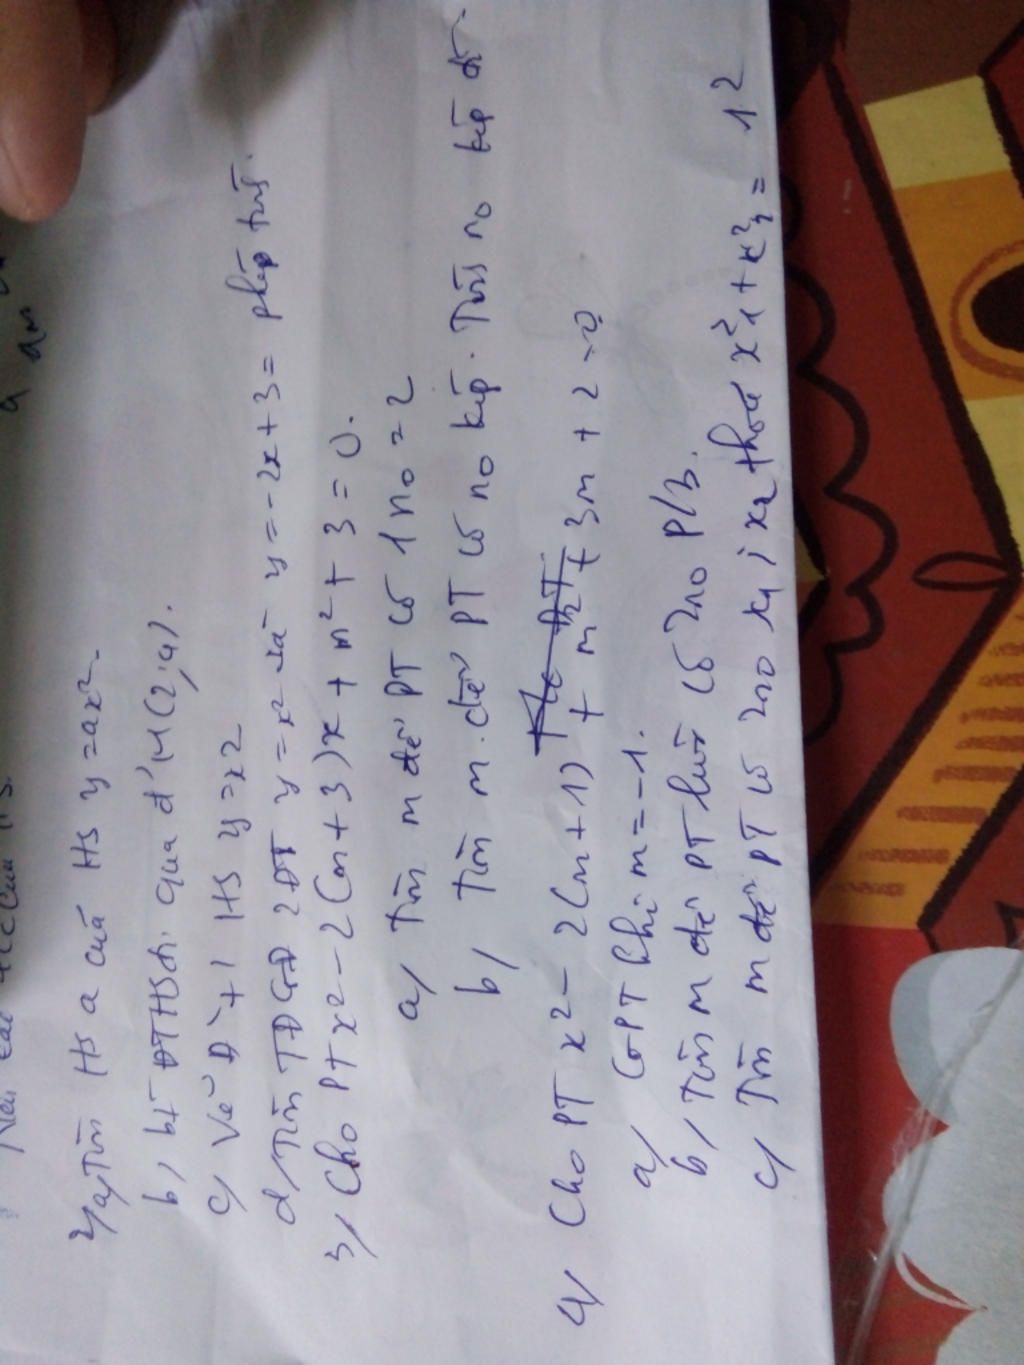 2, a, Tìm Hs a của Hs y = ax².
b, bt ĐTHS đi qua đ' M(2; 4).
c, Vẽ Đ + 1 Hs y = x2
d, Tìm TĐGĐ 2ĐT y = x² và y = -2x + 3 = phép tính.
3, Cho PT x² - 2(m + 3)x + m² + 3 = 0.
a, Tìm m để PT có 1 no = 2
b, Tìm m để PT có no kép. Tìm no kép đó.
4, Cho PT x² - 2(m + 1) + m² + 3m + 2 = 0
a, GPT khi m = -1.
b, Tìm m để PT luôn có 2no P/b.
c, Tìm m để PT có 2no x1; x2 thoả x²1 + x²2 = 12